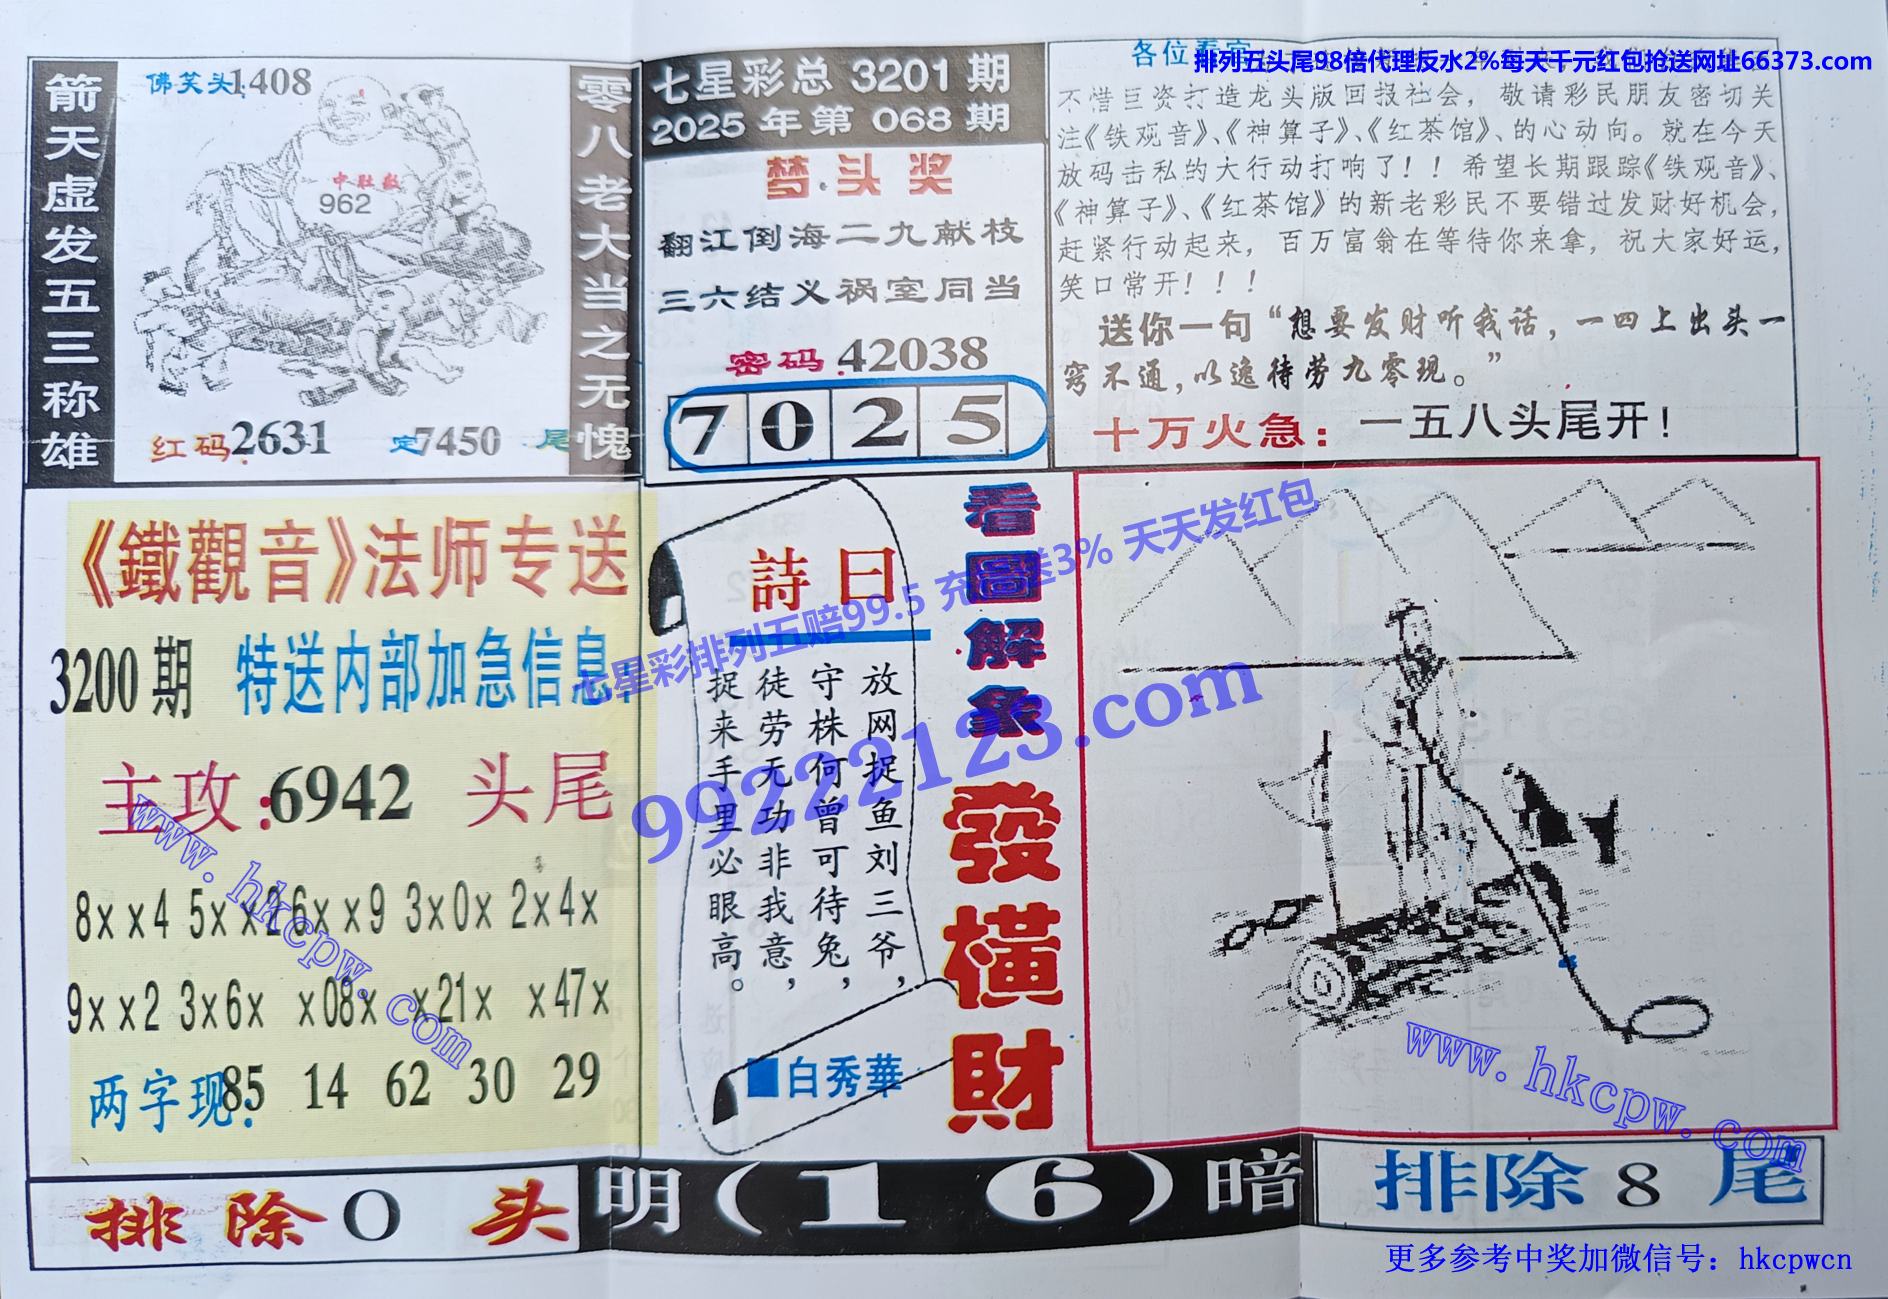 箭天虚发五三称雄
佛笑头:1408
中肚数
962
红码:2631 定7450尾
零八老大当之无愧
七星彩总 3201 期
2025 年第 068 期
梦头奖
翻江倒海二九献枝
三六结义祸室同当
密码:42038
7 0 2 5
各位看官
排列五头尾98倍代理反水2%每天千元红包抢送网址66373.com
不惜巨资打造龙头版回报社会，敬请彩民朋友密切关
注《铁观音》、《神算子》、《红茶馆》、的心动向。就在今天
放码击私的大行动打响了！！希望长期跟踪《铁观音》、
《神算子》、《红茶馆》的新老彩民不要错过发财好机会，
赶紧行动起来，百万富翁在等待你来拿，祝大家好运，
笑口常开！！！
送你一句“想要发财听我话，一四上出头一
窍不通，以逸待劳九零现。”
十万火急：一五八头尾开！
《鐵觀音》法师专送
3200期 特送内部加急信息:
主攻:6942 头尾
8××4 5××2 6××9 3×0× 2×4×
9××2 3×6× ×08× ×21× ×47×
两字现:85 14 62 30 29
詩曰
放网捉鱼刘三爷，
守株何曾可待兔，
徒劳无功非我意，
捉来手里必眼高。
■白秀華
看圖解象
發橫財
七星彩排列五赔99.5 充 送3% 天天发红包
99222123.com
www.hkcpw.com
www.hkcpw.com
排除0头
明(16)暗
排除8尾
更多参考中奖加微信号：hkcpwcn